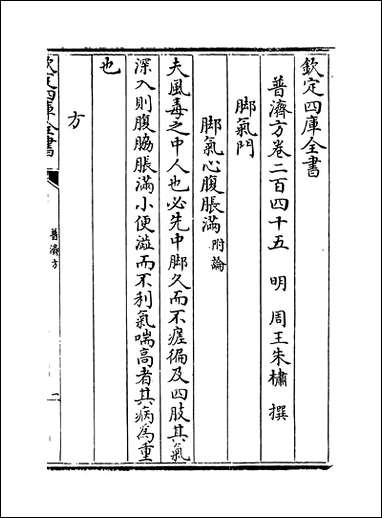 欽定四庫全書
普濟方卷二百四十五　明　周王朱橚　撰
脚氣門
脚氣心腹脹滿附論
夫風毒之中人也必先中脚久而不瘥徧及四肢其氣
深入則腹脇脹滿小便澁而不利氣喘高者其病為重
也
方
欽定四庫全書
普濟方
一